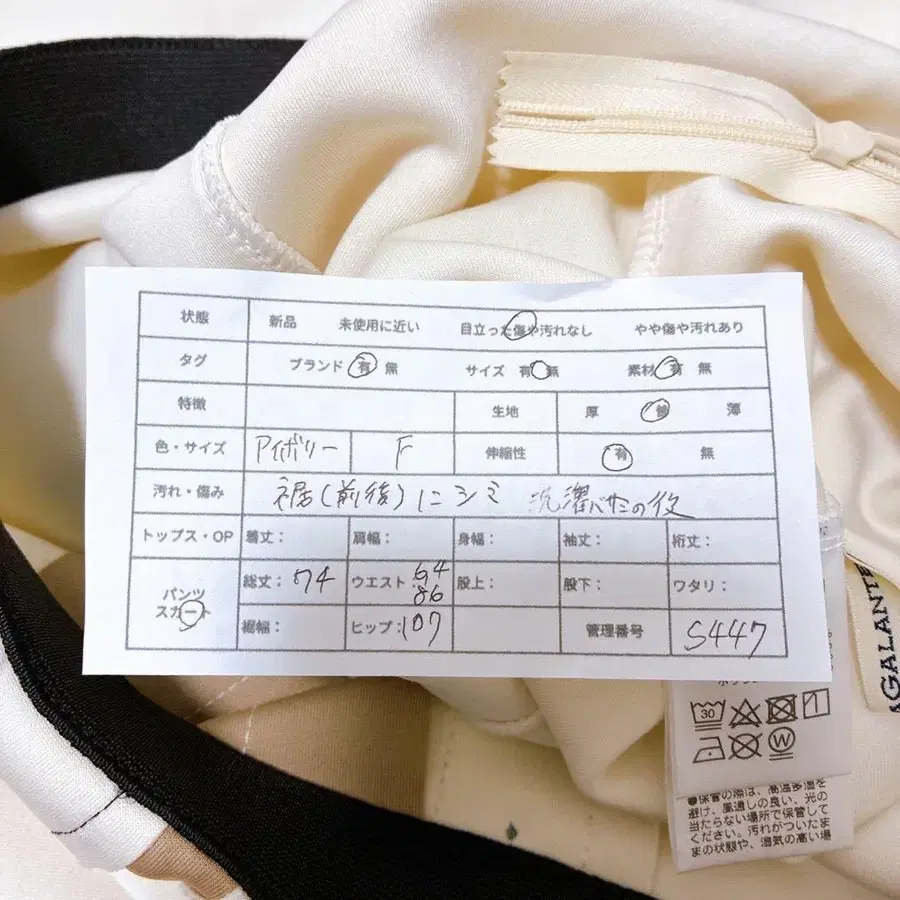 状態 新品 未使用に近い 目立った傷や汚れなし やや傷や汚れあり
タグ ブランド 有 無 サイズ 有 無 素材 有 無
特徴 生地 厚 普 薄
色・サイズ アイボリー F 伸縮性 有 無
汚れ・傷み 裾(前後)にシミ 洗濯バサミの
トップス・OP 着丈: 肩幅: 身幅: 袖丈: 裄丈:
パンツ
スカート
総丈: 74 ウエスト: 64
86
股上: 股下: ワタリ:
裾幅: ヒップ: 107 管理番号 S447
AGALANTE
30
W
●保管の際は、高温多湿を
避け、風通しの良い、光の
当たらない場所で保管して
ください。汚れがついたま
まの状態や、湿気の高い場